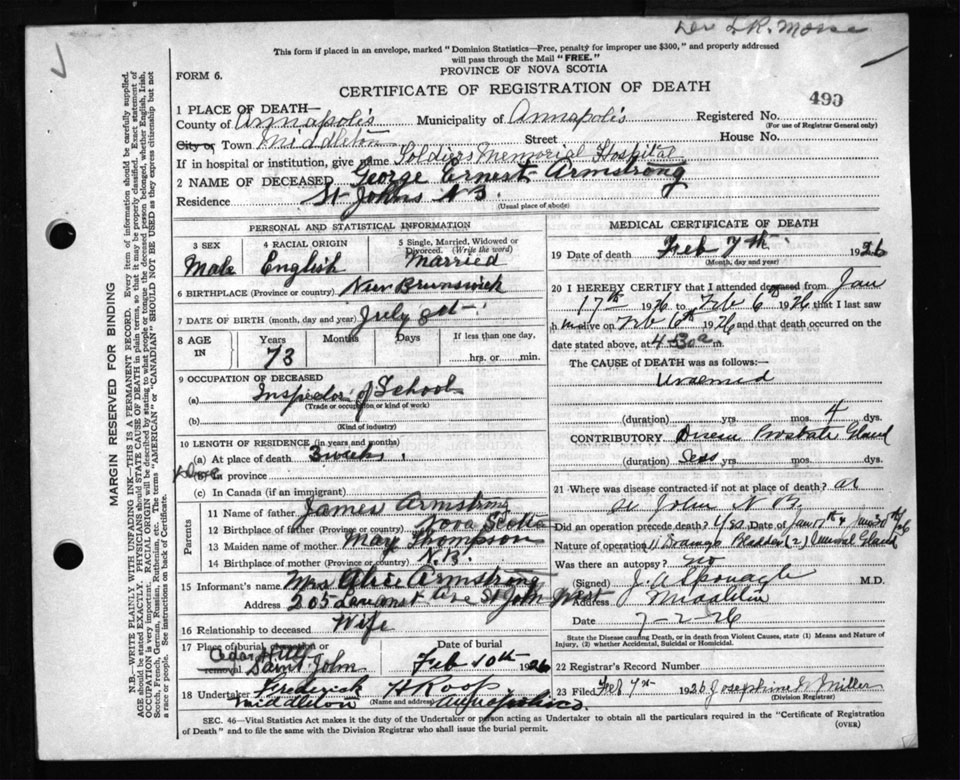 Dr L R. Morse
This form if placed in an envelope, marked "Dominion Statistics—Free, penalty for improper use $300," and properly addressed
will pass through the Mail "FREE."
FORM 6.
PROVINCE OF NOVA SCOTIA
CERTIFICATE OF REGISTRATION OF DEATH
490
1 PLACE OF DEATH—
County of Annapolis Municipality of Annapolis Registered No.
(For use of Registrar General only)
City or Town Middleton Street House No.
If in hospital or institution, give name Soldiers Memorial Hospital
2 NAME OF DECEASED George Ernest Armstrong
Residence St Johns N B.
(Usual place of abode)
PERSONAL AND STATISTICAL INFORMATION
3 SEX
Male
4 RACIAL ORIGIN
English
5 Single, Married, Widowed or
Divorced. (Write the word)
Married
6 BIRTHPLACE (Province or country) New Brunswick
7 DATE OF BIRTH (month, day and year) July
8 AGE
IN
Years
73
Months
Days
If less than one day,
hrs. or min.
9 OCCUPATION OF DECEASED
(a) Inspector of School
(Trade or occupation or kind of work)
(b)
(Kind of industry)
10 LENGTH OF RESIDENCE (in years and months)
(a) At place of death 3 weeks
(b) In province
(c) In Canada (if an immigrant)
Parents
11 Name of father James Armstrong
12 Birthplace of father (Province or country) Nova Scotia
13 Maiden name of mother May Thompson
14 Birthplace of mother (Province or country) N.B.
15 Informant's name Mrs Alice Armstrong
Address 205 Ave St John West
16 Relationship to deceased Wife
17 Place of burial, cremation or
removal Cedar Hill
Saint John
Date of burial
Feb 10th 1926
18 Undertaker Frederick H Roop
Middleton (Name and address) Annapolis Co.
MEDICAL CERTIFICATE OF DEATH
19 Date of death Feb 7th 1926
(Month, day and year)
20 I HEREBY CERTIFY that I attended deceased from Jan
17th 1926 to Feb 6th 1926 that I last saw
him alive on Feb 6th 1926 and that death occurred on
date stated above, at 4-30 a m.
The CAUSE of DEATH was as follows:—
Uraemia
(duration) yrs. mos. 4 dys.
CONTRIBUTORY Prostate Gland
(duration) yrs. mos. dys.
21 Where was disease contracted if not at place of death? at
St John N B.
Did an operation precede death? Yes Date of Jan 17th & Jan 30th/26
Nature of operation (1) Drainage Bladder (2) removal Gland
Was there an autopsy? No
(Signed) J. A. Sponagle M.D.
Address Middleton
Date 7-2-26
State the Disease causing Death, or in death from Violent Causes, state (1) Means and Nature of
Injury, (2) whether Accidental, Suicidal or Homicidal.
22 Registrar's Record Number
23 Filed Feb 7th 1926 Josephine Miller
(Division Registrar)
SEC. 46—Vital Statistics Act makes it the duty of the Undertaker or person acting as Undertaker to obtain all the particulars required in the "Certificate of Registration
of Death" and to file the same with the Division Registrar who shall issue the burial permit.
(OVER)
MARGIN RESERVED FOR BINDING
N.B.—WRITE PLAINLY WITH UNFADING INK—THIS IS A PERMANENT RECORD. Every item of information should be carefully supplied.
AGE should be stated EXACTLY. PHYSICIANS should STATE CAUSE OF DEATH in plain terms, so that it may be properly classified. Exact statement of
OCCUPATION is very important. RACIAL ORIGIN will be described by stating to what people or tongue the deceased person belonged, whether English, Irish,
Scotch, French, German, Russian, Ruthenian, etc. The terms "AMERICAN" or "CANADIAN" SHOULD NOT BE USED as they express citizenship but not
a race or people. See instructions on back of Certificate.